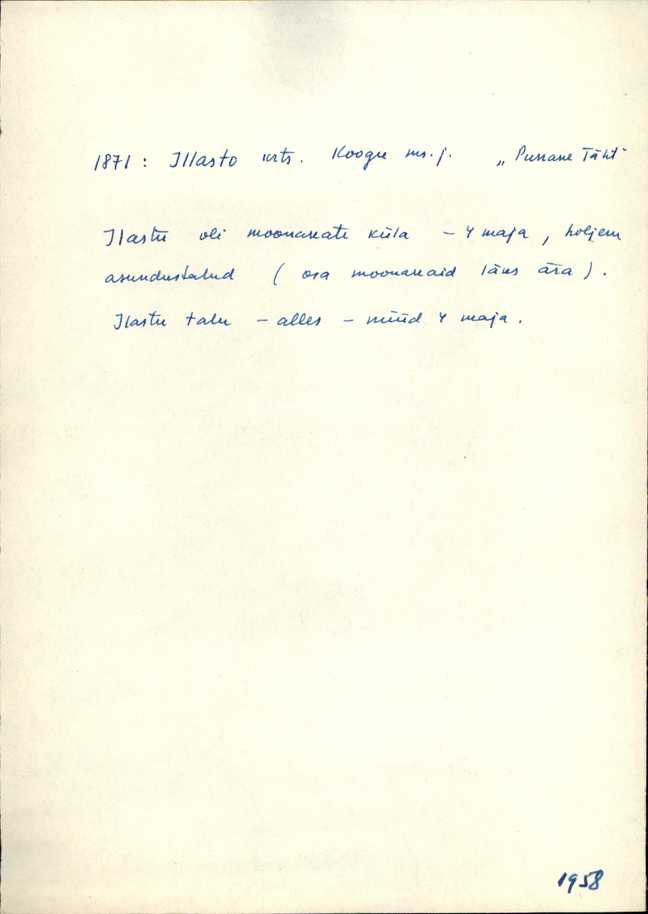 1871 : Illasto krts. Koogu ms. j. „Punane Täht"
Ilastu oli moonakate küla – 4 maja, hiljem
asundustalud ( osa moonakaid läks ära ).
Ilastu talu – alles – nüüd 4 maja.
1958